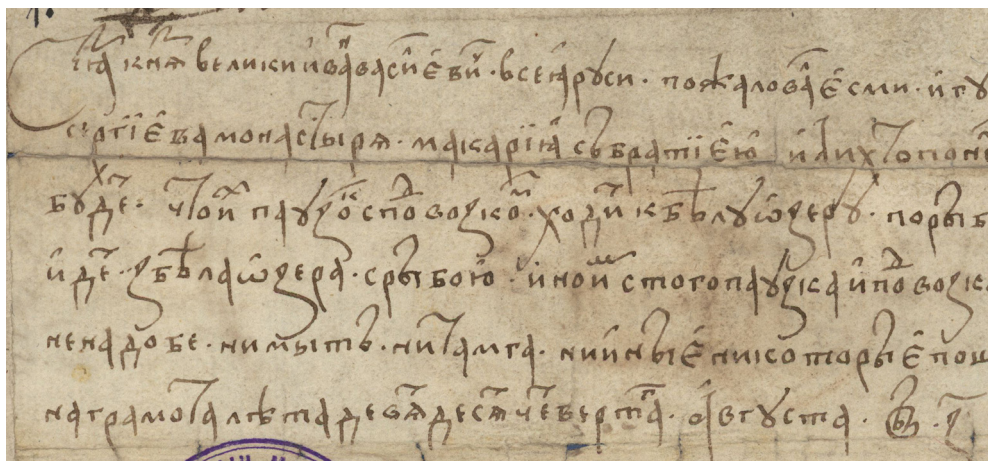 Се ꙗз кнѧз великии иван васильєвич всеꙗ руси пожаловал єсми игу
сергиєва монастырѧ макариꙗ съ братиєю или хто по не
будет что им паузок с подвозком ходит к бѣлуѡзеру по рыб
идет з бѣлаѡзера с рыбою ино им с того паузка и подвозк
не надобе ни мыть ни тамга ни иныє никоторыє пош
на грамота лѣта деветьдесѧт четвертаго августа